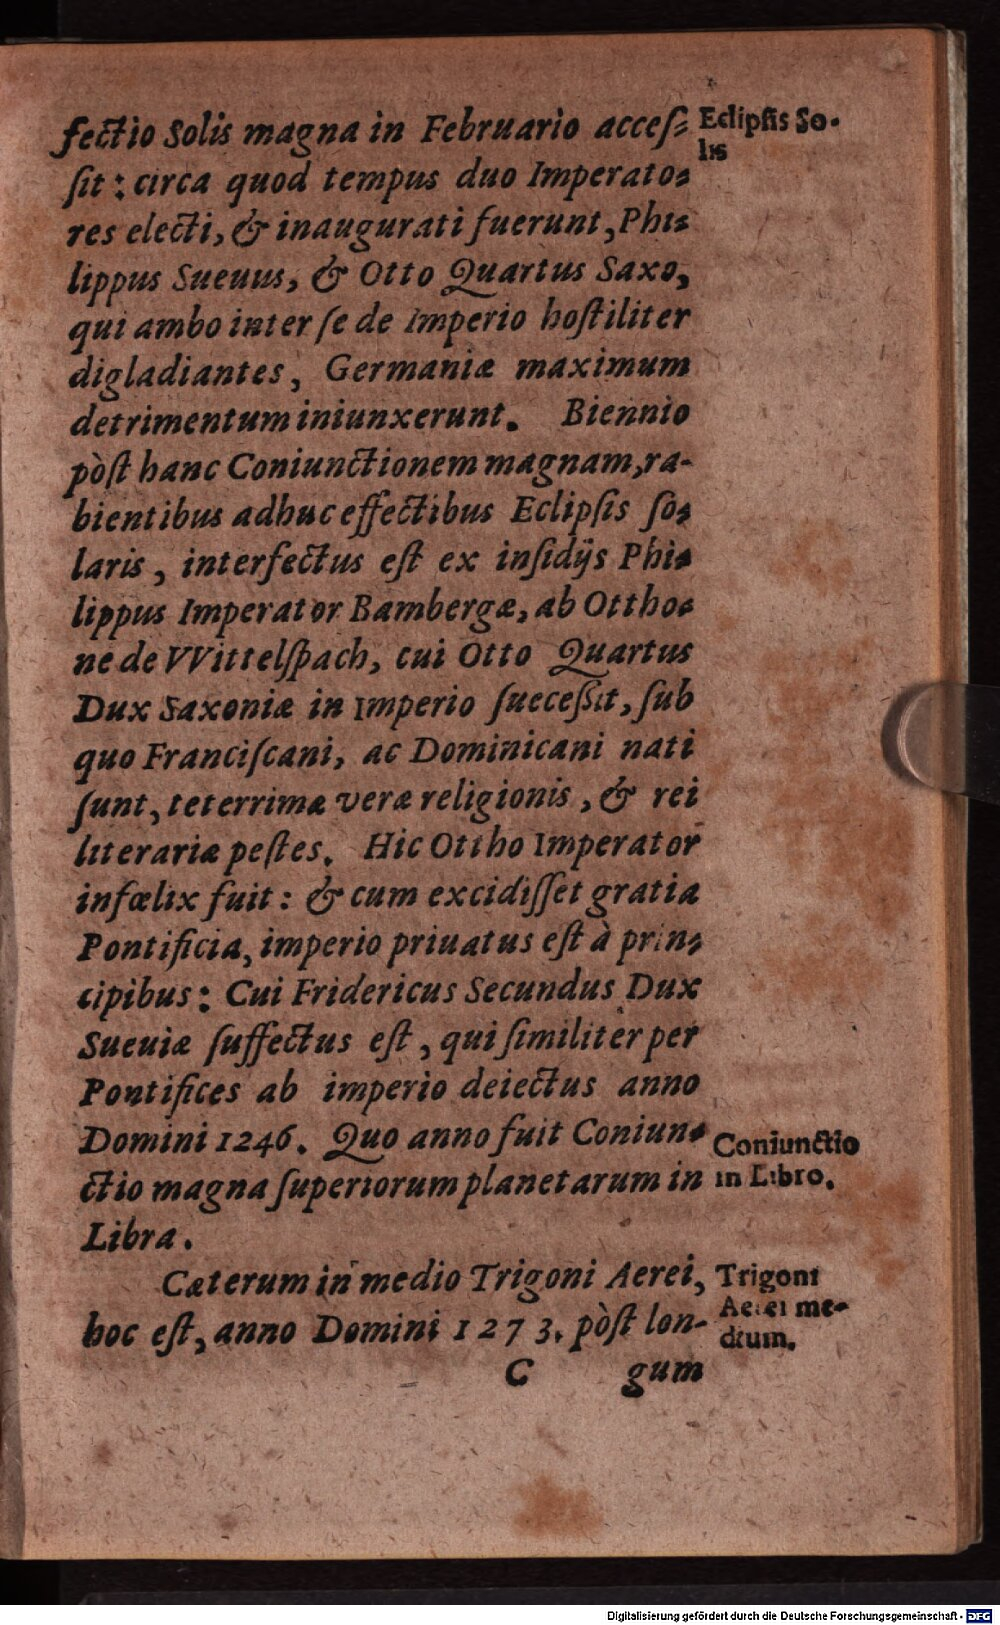 fectio Solis magna in Februario acceſ⸗
ſit: circa quod tempus duo Imperato⸗
res electi, & inaugurati fuerunt, Phi⸗
lippus Sueuus, & Otto Quartus Saxo,
qui ambo inter ſe de Imperio hoſtiliter
digladiantes, Germaniæ maximum
detrimentum iniunxerunt. Biennio
pòſt hanc Coniunctionem magnam, ra-
bientibus adhuc effectibus Eclipſis ſo⸗
laris, interfectus eſt ex inſidijs Phi⸗
lippus Imperator Bambergæ, ab Ottho⸗
ne de VVittelſpach, cui Otto Quartus
Dux Saxoniæ in Imperio ſueceſſit, ſub
quo Franciſcani, ac Dominicani nati
ſunt, teterrimæ veræ religionis, & rei
literariæ peſtes. Hic Ottho Imperator
infœlix fuit: & cum excidiſſet gratia
Pontificia, imperio priuatus eſt à prin⸗
cipibus: Cui Fridericus Secundus Dux
Sueuiæ ſuffectus eſt, qui ſimilitèr per
Pontifices ab imperio deiectus anno
Domini 1246. Quo anno fuit Coniun⸗
ctio magna ſuperiorum planetarum in
Libra.
Cæterum in medio Trigoni Aerei,
hoc eſt, anno Domini 1273. pòſt lon-
C gum
Eclipſis So-
lis
Coniunctio
in Libro.
Trigoni
Aerei me-
dium.
Digitalisierung gefördert durch die Deutsche Forschungsgemeinschaft - DFG